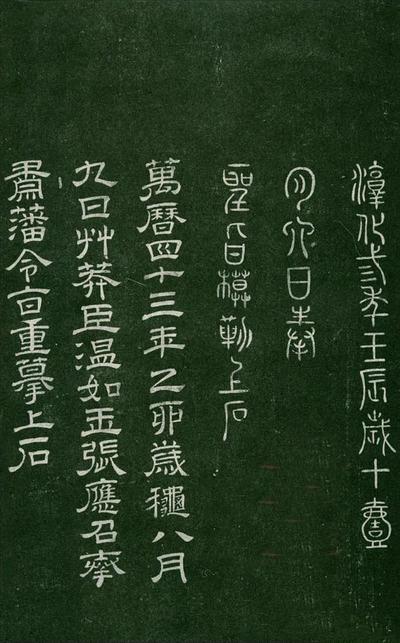 淳化弎季壬辰歲十壹
月六日奉
聖旨模勒上石
萬曆四十三年乙卯歲穐八月
九日艸莽臣温如玉張應召奉
肅藩令旨重摹上石